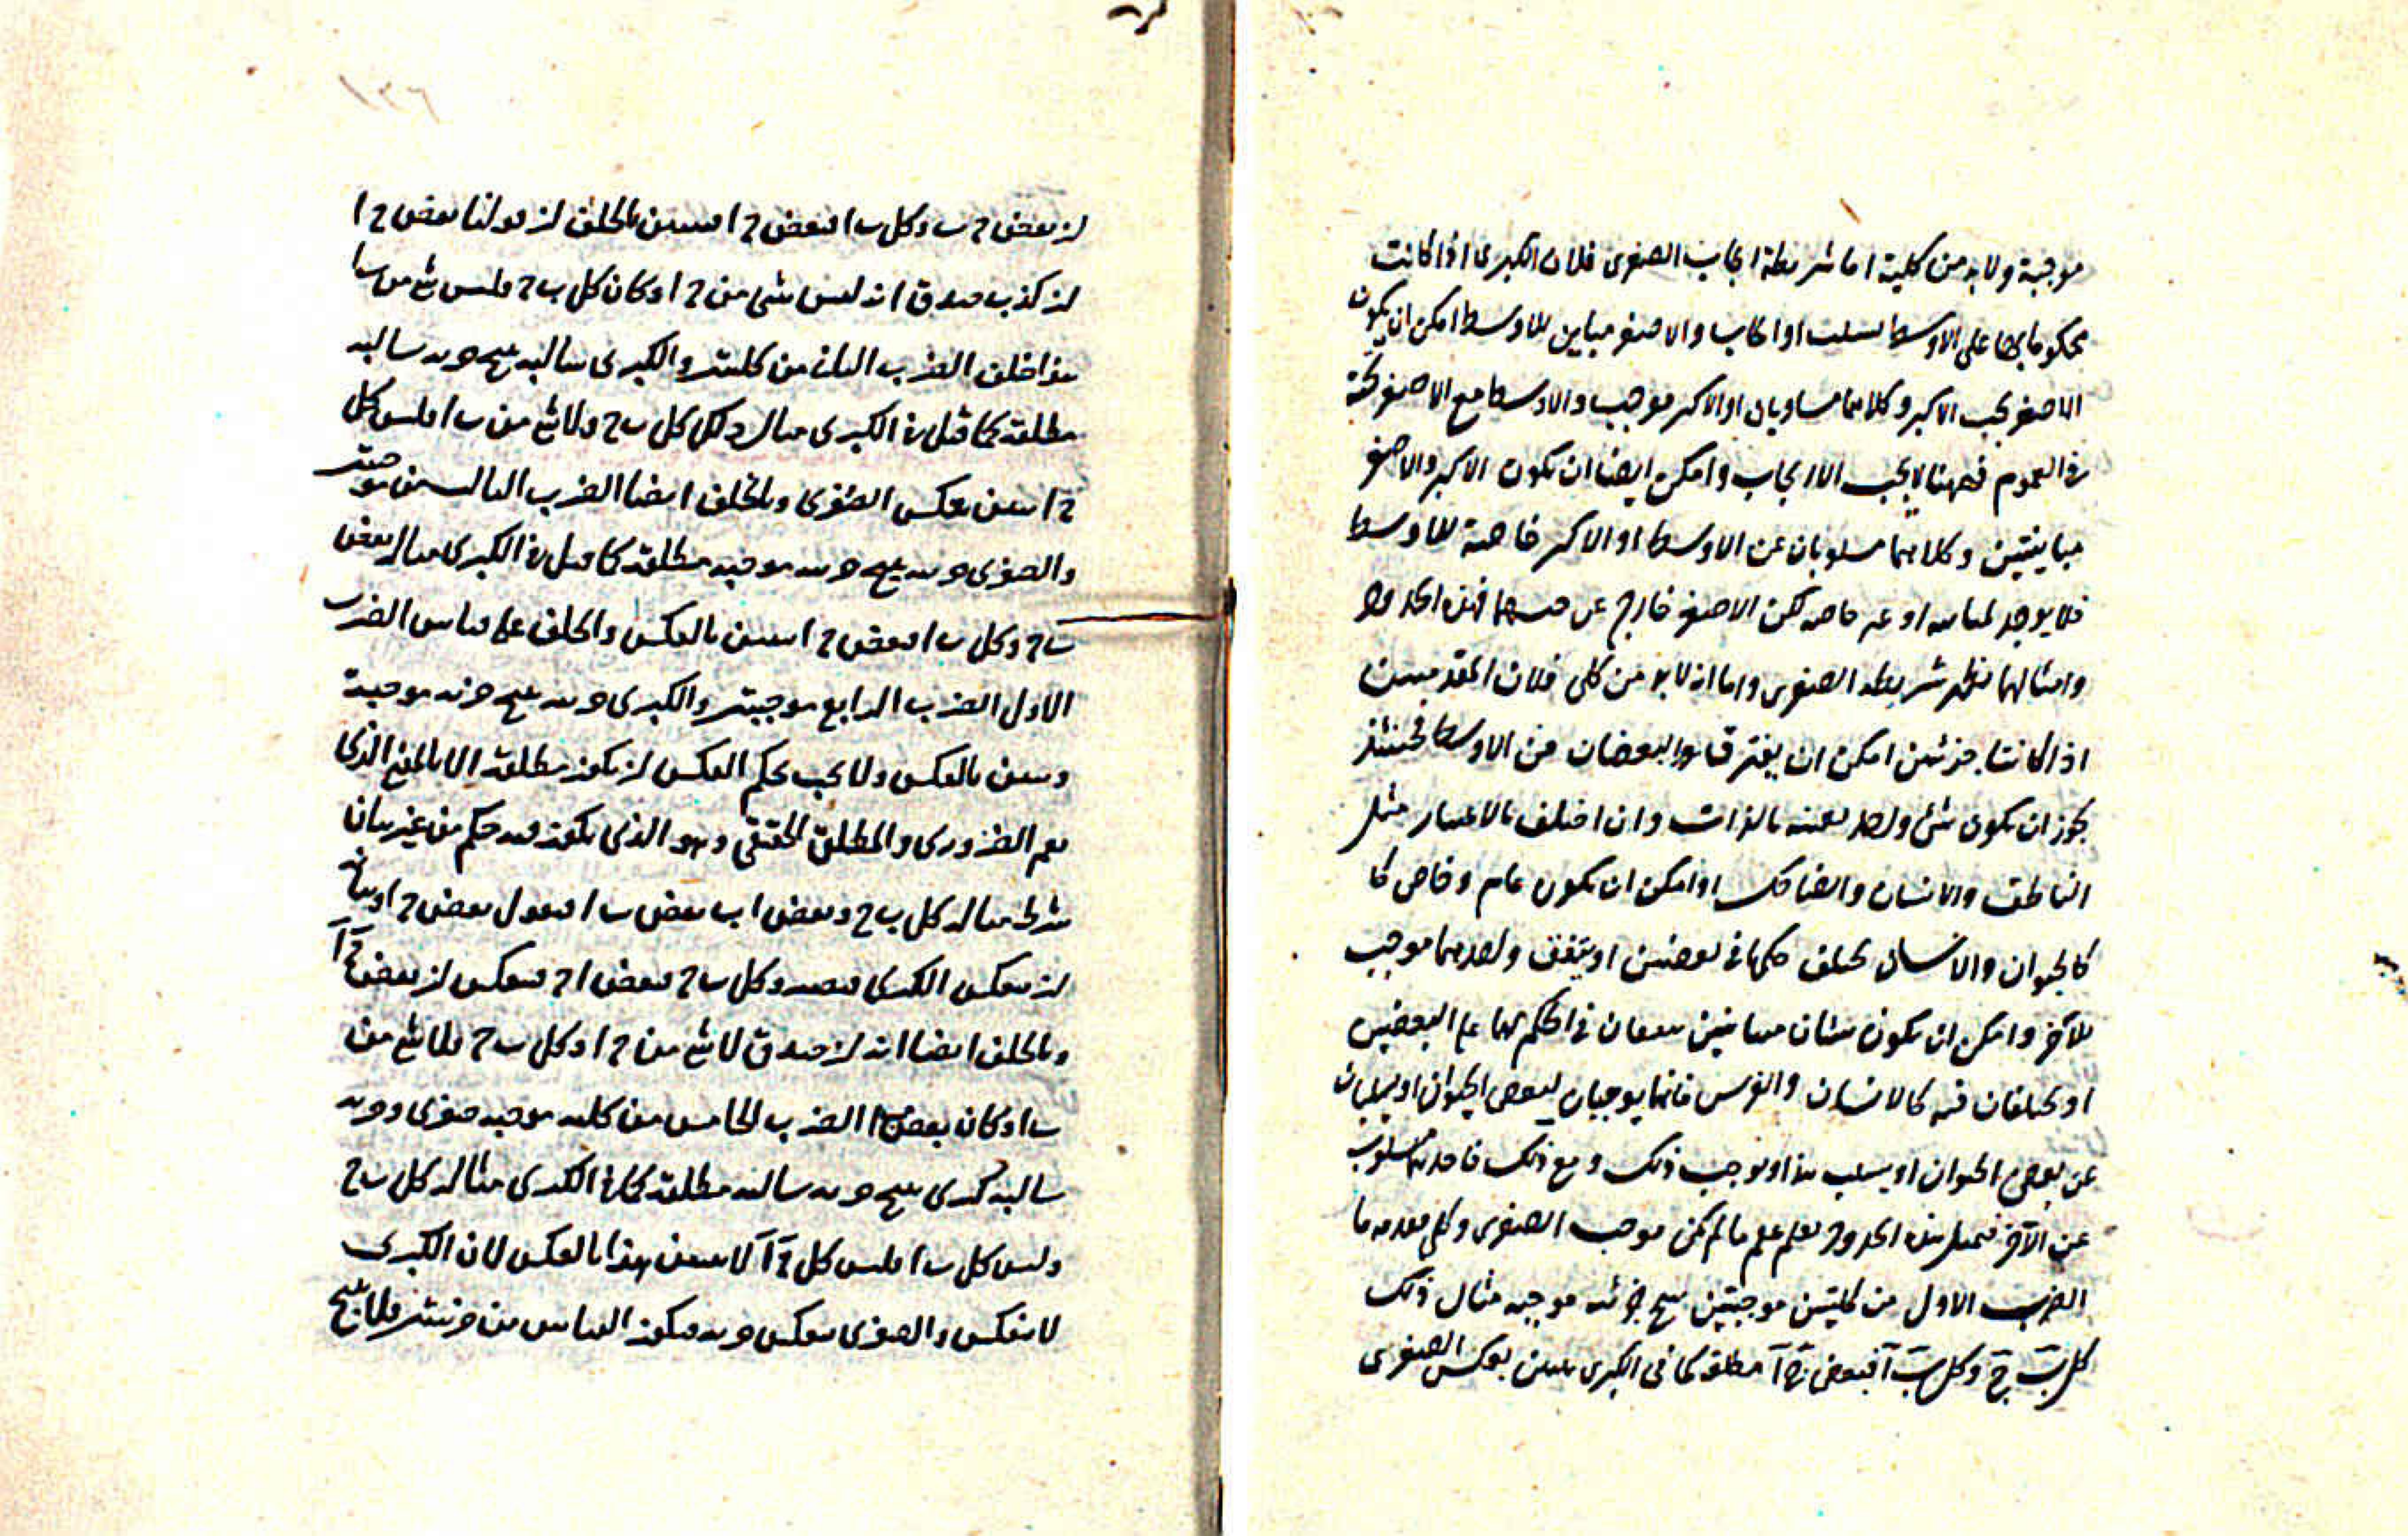 موجبة ولابد من كلية اما شريطة ايجاب الصغرى فلان الكبرى اذا كانت
محكوما بها على الاوسط لسلب او ايجاب والاصغر مباين للاوسط امكن ان يكون
الاصغر يجب الاكبر وكلاهما مساويان او الاكبر موجب والاوسط مع الاصغر تحته
فى العموم فههنا لايجب الا الايجاب وامكن ايضا ان يكون الاكبر والاصغر
مباينتين وكلاهما مسلوبان عن الاوسط او الاكبر خاصة للاوسط
فلا يوجد لمباينه او غير خاصه لكن الاصغر خارج عن فهذه الحدود
وامثالها تظهر شريطه الصغرى واما انه لابد من كلى فلان المقدمتين
اذا كانتا جزئيتين امكن ان يفترقا والبعضان من الاوسط فحينئذ
يجوز ان يكون شئ واحد بعينه بالذات وان اختلف بالاعتبار مثل
الناطق والانسان والضاحك او امكن ان يكون عام وخاص كا
كالحيوان والانسان يختلف حكمهما فى بعضين او يتفق واحدهما موجب
للآخر وامكن ان يكون شيئان متباينين يتفقان فى الحكم بهما على البعضين
او يختلفان فيه كالانسان والفرس فانهما يوجبان لبعض الحيوان او يسلبان
عن بعض الحيوان او يسلب هذا ويوجب ذلك ومع ذلك فاحدهما مسلوب
عن الآخر فبمثل هذه الحدود تعلم عقم ما لم يكن موجب الصغرى وكلى مقدمه ما
الضرب الاول من كليتين موجبتين ينتج جزئيه موجبه مثال ذلك
كل ب ج وكل ب آ فبعض ج آ مطلقه كما فى الكبرى يتبين بعكس الصغرى
ان بعض ج ب وكل ب ا فبعض ج ا ويتبين بالخلف ان قولنا بعض ج ا
ان كذب صدق انه ليس شى من ج ا وكان كل ب ج فليس شئ من ب ا
هذا خلف الضرب الثانى من كليتين والكبرى سالبه ينتج جزئيه سالبه
مطلقه كما قيل فى الكبرى مثال ذلك كل ب ج ولا شئ من ب ا فليس كل
ج ا يتبين بعكس الصغرى وبالخلف ايضا الضرب الثالث من موجبتين
والصغرى جزئيه ينتج جزئيه موجبه مطلقه كما قيل فى الكبرى مثاله بعض
ب ج وكل ب ا فبعض ج ا يتبين بالعكس والخلف على قياس الضرب
الاول الضرب الرابع موجبتين والكبرى جزئيه ينتج جزئيه موجبة
ويتبين بالعكس ولا يجب بحكم العكس ان يكون مطلقه الا بالمعنى الذى
يعم الضرورى والمطلق الحقيقى وهو الذى يكون فيه حكم من غير بيان
شرط مثاله كل ب ج وبعض ا ب بعض ب ا فنقول بعض ج ا وبيانه
ان تعكس الكبرى فيصير وكل ب ج فبعض ا ج فيعكس ان بعض ج آ
وبالخلف ايضا انه ان صدق لا شئ من ج ا وكل ب ج فلا شئ من
ب ا وكان بعض ا الضرب الخامس من كليه موجبه صغرى وجزئيه
سالبه كبرى ينتج جزئيه سالبه مطلقه كما فى الكبرى مثاله كل ب ج
وليس كل ب ا فليس كل ج آ لا يتبين هذا بالعكس لان الكبرى
لا تنعكس والصغرى تنعكس جزئيه فيكون القياس من جزئيتين فلا ينتج